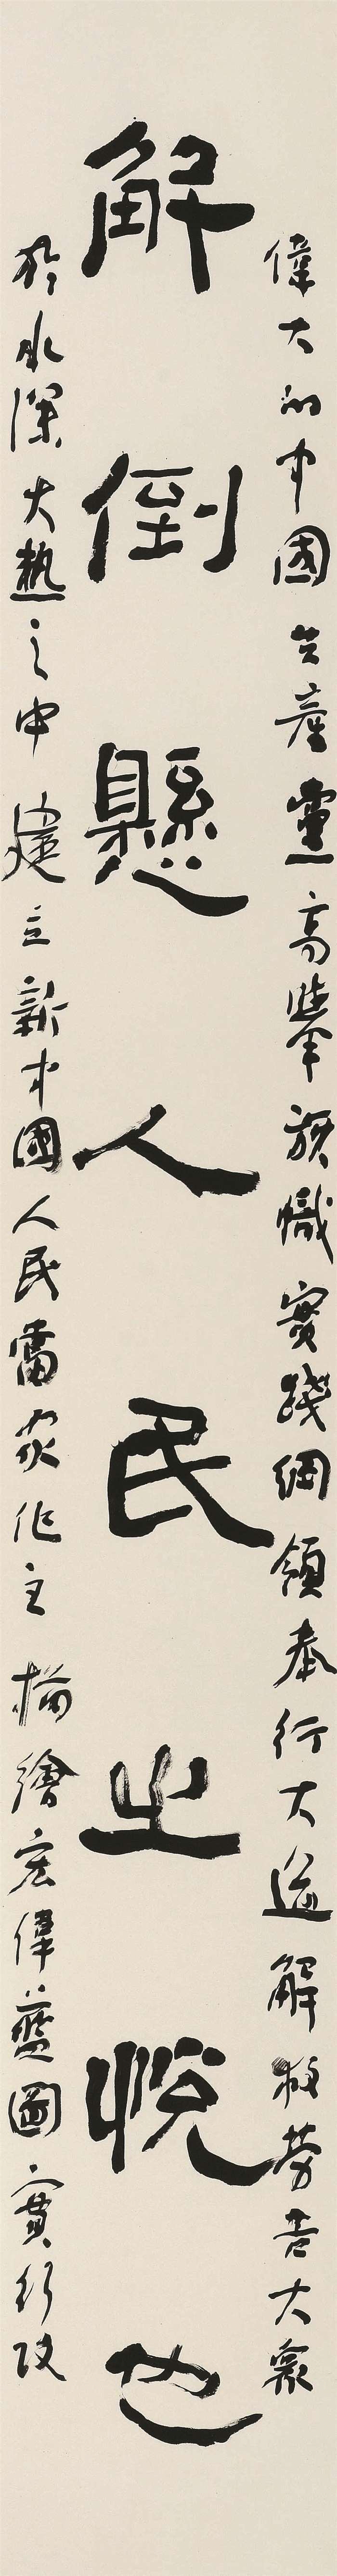 偉大的中國共產黨高舉旗幟實踐綱領奉行大道解放勞苦大衆
解倒懸人民之悅也
於水深火熱之中建立新中國人民當家作主描繪宏偉藍圖實行改